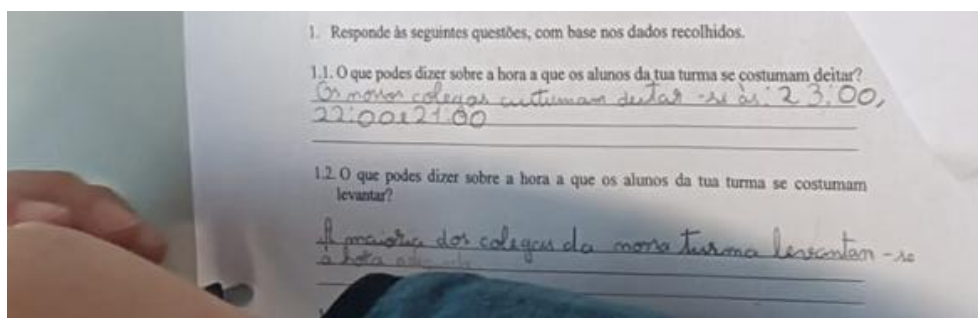 1. Responde às seguintes questões, com base nos dados recolhidos.
1.1. O que podes dizer sobre a hora a que os alunos da tua turma se costumam deitar?
Os nossos colegas custumam deitar-se às: 23:00,
22:00 e 21:00
1.2. O que podes dizer sobre a hora a que os alunos da tua turma se costumam
levantar?
A maioria dos colegas da nossa turma levantan-se
à hora